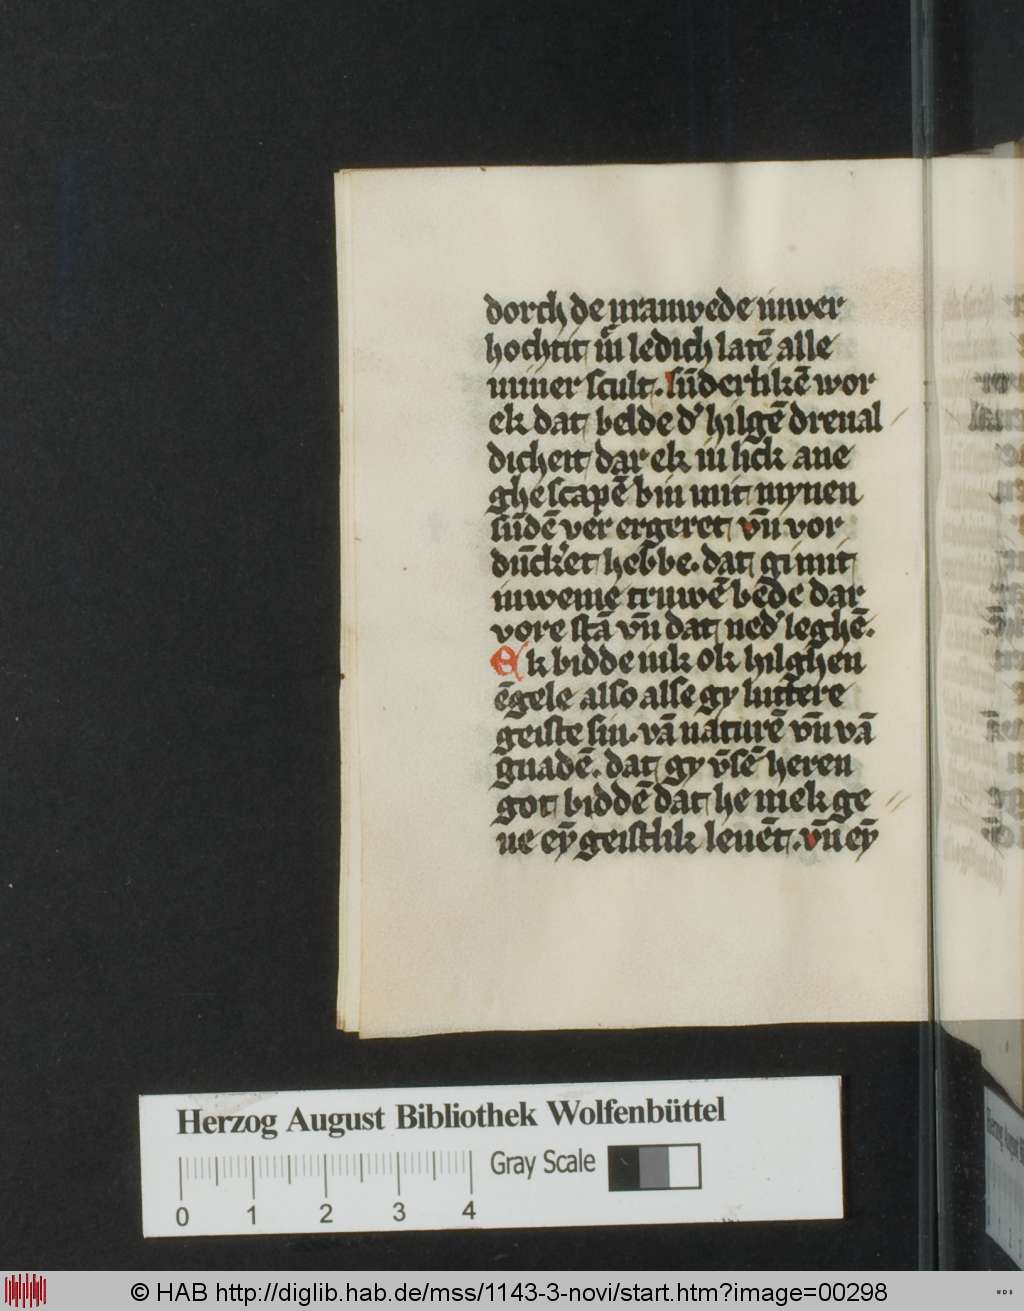 dorch de vrauwede iuwer
hochtit mi ledich latē alle
miner scult. sūderlikē vvor
ek dat belde dʼ hilgē dreual
dicheit dar ek in lick ane
ghescapē bin mit mynen
sūdē ver ergeret vn̄ vor
dūckʼet hebbe. dat gi mit
iuweme truwē bēde dar
vore stā vn̄ dat nedʼ leghē.
Ek bidde iuk ok hilghen
ēgele also alse gy luttere
geiste sin. vā naturē vn̄ vā
gnadē. dat gy v̄sē heren
got biddē dat he mek ge
ue eȳ geistlik leuēt. vn̄ eȳ
Herzog August Bibliothek Wolfenbüttel
Gray Scale
0 1 2 3 4
© HAB http://diglib.hab.de/mss/1143-3-novi/start.htm?image=00298